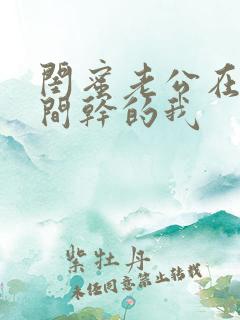 閨蜜老公在
間幹的我
紫牡丹
未经同意禁止转载